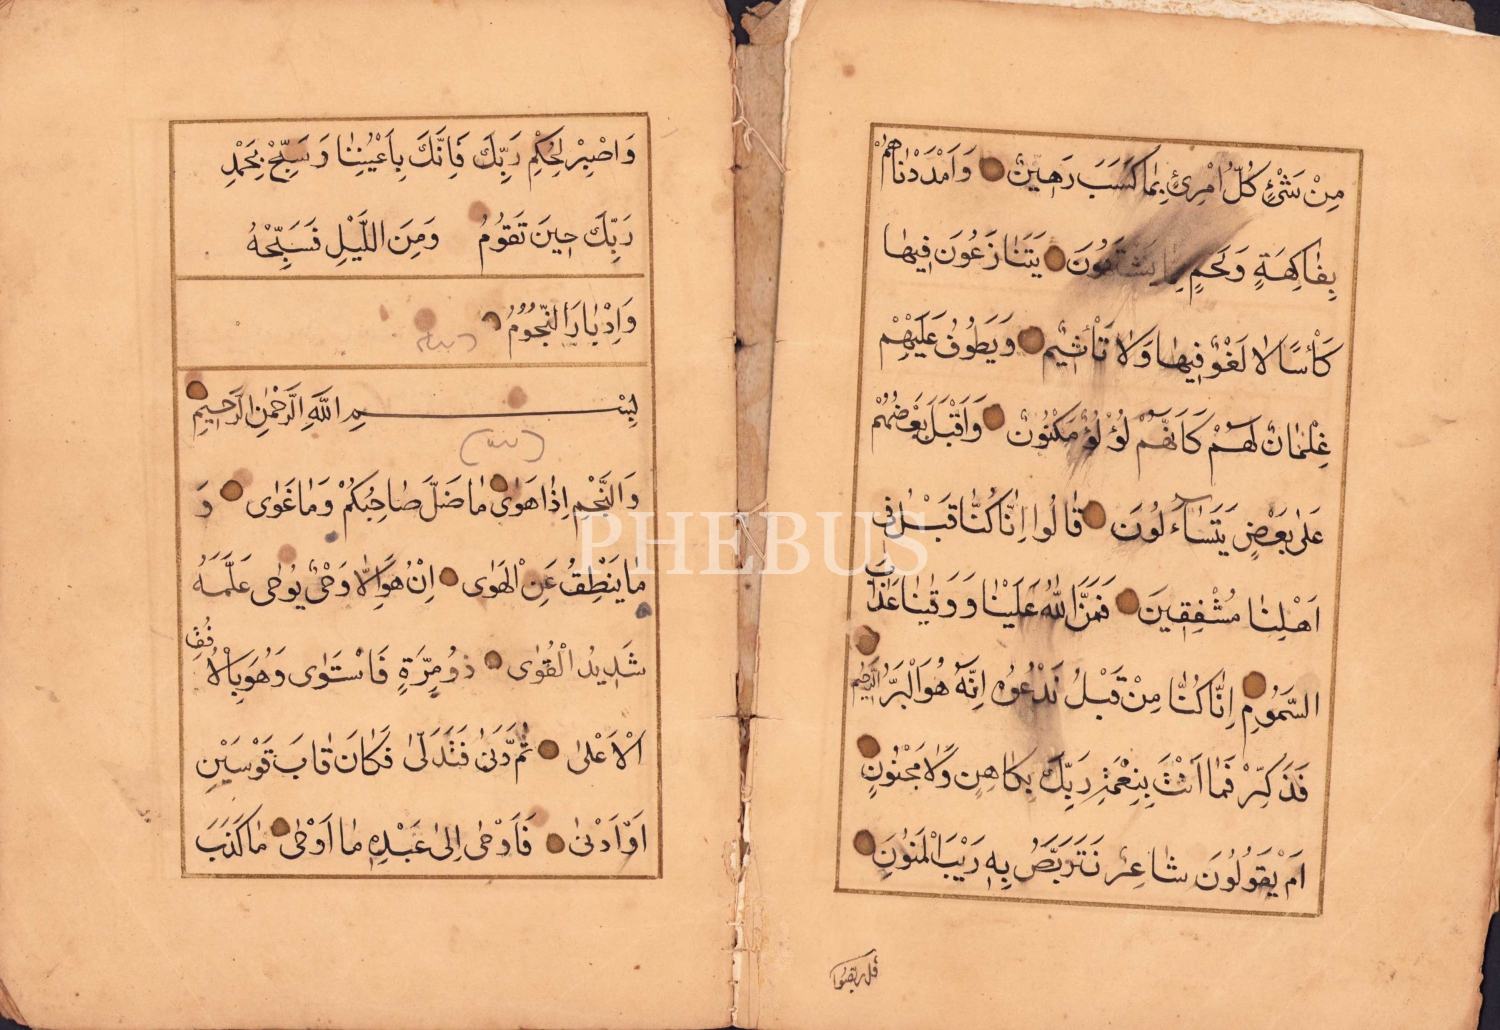 مِنْ شَیْءٍ كُلُّ امْرِئٍ بِمَا كَسَبَ رَهِينٌ وَاَمْدَدْنَاهُمْ
بِفَاكِهَةٍ وَلَحْمٍ مِمَّا يَشْتَهُونَ يَتَنَازَعُونَ فِيهَا
كَأْسًا لَا لَغْوٌ فِيهَا وَلَا تَأْثِيمٌ وَيَطُوفُ عَلَيْهِمْ
غِلْمَانٌ لَهُمْ كَاَنَّهُمْ لُؤْلُؤٌ مَكْنُونٌ وَاَقْبَلَ بَعْضُهُمْ
عَلٰى بَعْضٍ يَتَسَآءَلُونَ قَالُوا اِنَّا كُنَّا قَبْلُ فِی
اَهْلِنَا مُشْفِقِينَ فَمَنَّ اللّٰهُ عَلَيْنَا وَوَقٰينَا عَذَابَ
السَّمُومِ اِنَّا كُنَّا مِنْ قَبْلُ نَدْعُوهُ اِنَّهُ هُوَ الْبَرُّ الرَّحِيمُ
فَذَكِّرْ فَمَا اَنْتَ بِنِعْمَةِ رَبِّكَ بِكَاهِنٍ وَلَا مَجْنُونٍ
اَمْ يَقُولُونَ شَاعِرٌ نَتَرَبَّصُ بِهِ رَيْبَ الْمَنُونِ
قل تربصوا
وَاصْبِرْ لِحُكْمِ رَبِّكَ فَاِنَّكَ بِاَعْيُنِنَا وَسَبِّحْ بِحَمْدِ
رَبِّكَ حِينَ تَقُومُ وَمِنَ اللَّيْلِ فَسَبِّحْهُ
وَاِدْبَارَ النُّجُومِ
بِسْمِ اللّٰهِ الرَّحْمٰنِ الرَّحِيمِ
وَالنَّجْمِ اِذَا هَوٰى مَا ضَلَّ صَاحِبُكُمْ وَمَا غَوٰى وَ
مَا يَنْطِقُ عَنِ الْهَوٰى اِنْ هُوَ اِلَّا وَحْیٌ يُوحٰى عَلَّمَهُ
شَدِيدُ الْقُوٰى ذُو مِرَّةٍ فَاسْتَوٰى وَهُوَ بِالْاُفُقِ
الْاَعْلٰى ثُمَّ دَنٰى فَتَدَلّٰى فَكَانَ قَابَ قَوْسَيْنِ
اَوْ اَدْنٰى فَاَوْحٰى اِلٰى عَبْدِهِ مَا اَوْحٰى مَا كَذَبَ
PHEBUS